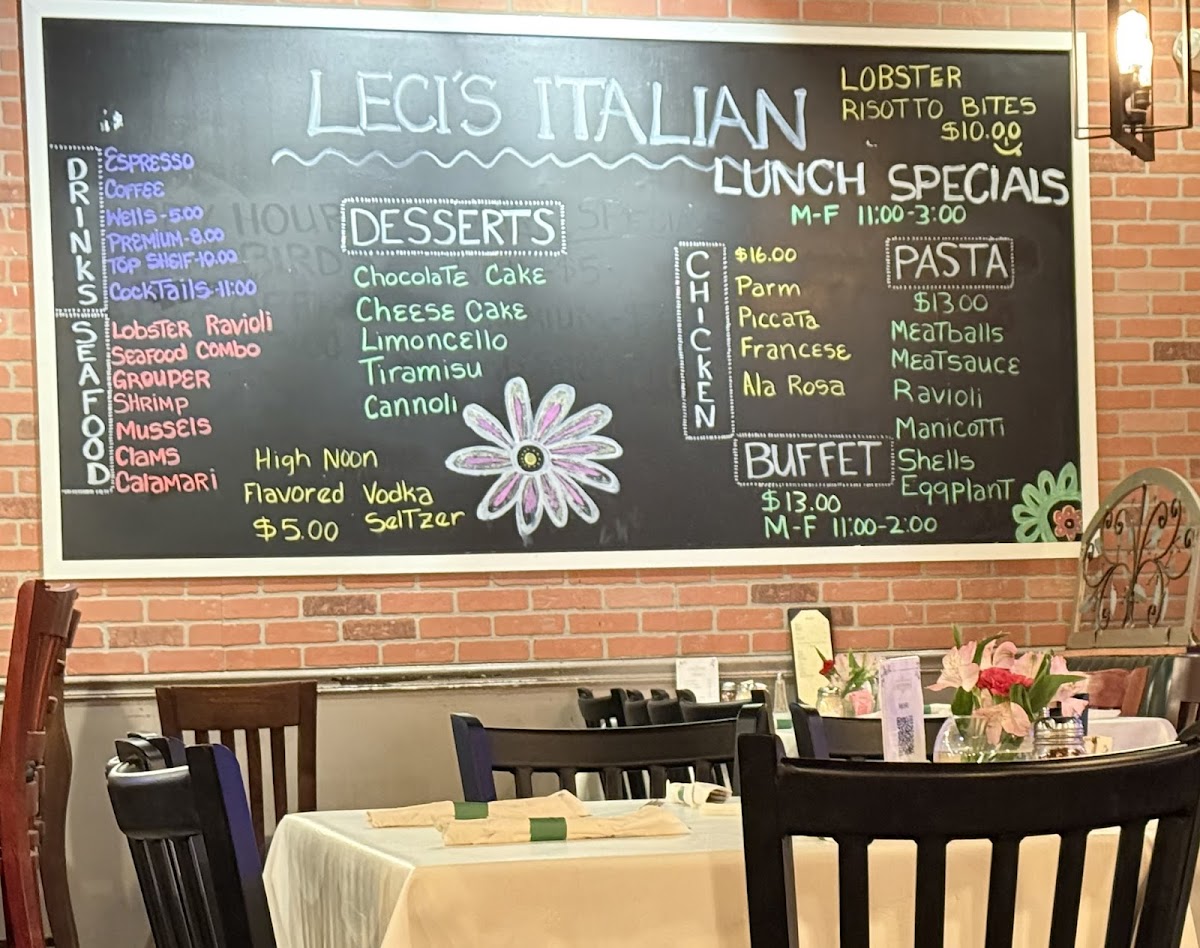 LECI'S ITALIAN
LOBSTER
RISOTTO BITES
$10.00
DRINKS
ESPRESSO
COFFEE
Wells-5.00
PREMIUM-8.00
TOP SHElF-10.00
CockTails-11:00
SEAFOOD
LOBSTER Ravioli
Seafood COMBO
GROUPER
SHRIMP
MUSSElS
ClAMS
CalaMaRi
DESSERTS
Chocolate Cake
Cheese Cake
Limoncello
Tiramisu
Cannoli
High Noon
Flavored Vodka
$5.00 Seltzer
LUNCH SPECIALS
M-F 11:00-3:00
CHICKEN
$16.00
Parm
Piccata
Francese
Ala Rosa
PASTA
$13.00
Meatballs
Meatsauce
Ravioli
Manicotti
Shells
Eggplant
BUFFET
$13.00
M-F 11:00-2:00